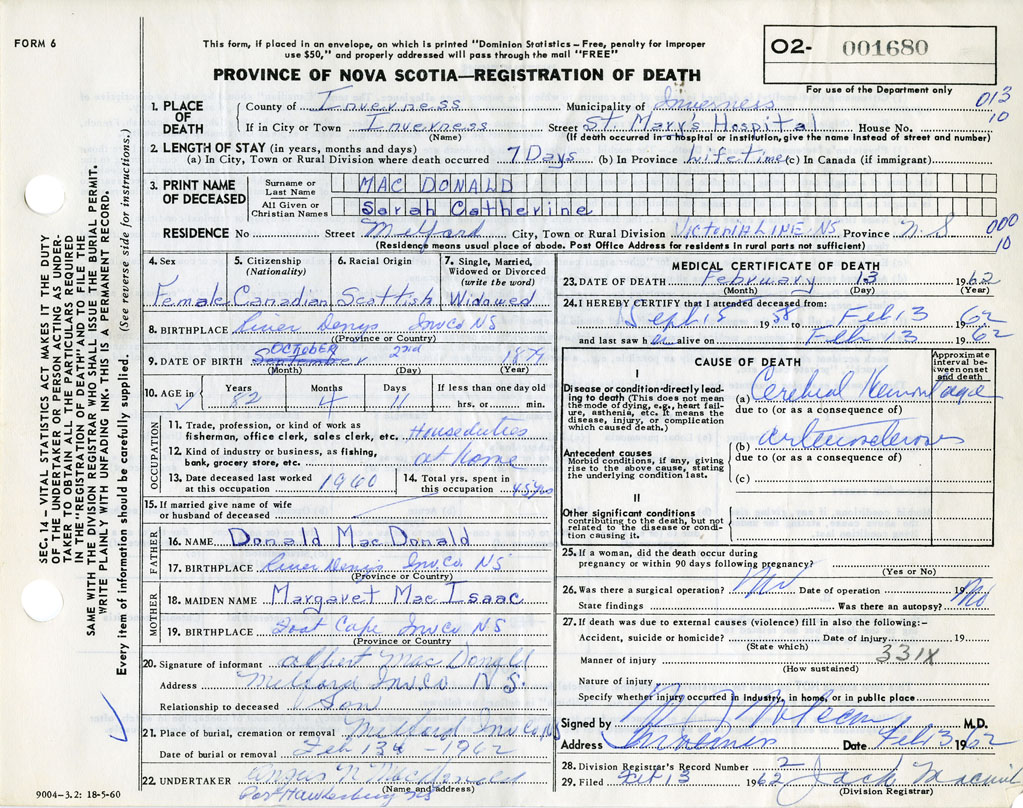 FORM 6
This form, if placed in an envelope, on which is printed "Dominion Statistics – Free, penalty for improper
use $50," and properly addressed will pass through the mail "FREE"
PROVINCE OF NOVA SCOTIA—REGISTRATION OF DEATH
O2- 001680
For use of the Department only
013
10
1. PLACE OF DEATH
County of Inverness Municipality of Inverness
If in City or Town Inverness Street St. Mary's Hospital House No.
(Name) (If death occurred in a hospital or institution, give the name instead of street and number)
2. LENGTH OF STAY (in years, months and days)
(a) In City, Town or Rural Division where death occurred 7 Days (b) In Province Lifetime (c) In Canada (if immigrant)
3. PRINT NAME OF DECEASED
Surname or Last Name MAC DONALD
All Given or Christian Names Sarah Catherine
RESIDENCE No Street Melford City, Town or Rural Division VICTORIA LINE NS Province N.S
000
10
(Residence means usual place of abode. Post Office Address for residents in rural parts not sufficient)
4. Sex Female
5. Citizenship (Nationality) Canadian
6. Racial Origin Scottish
7. Single, Married, Widowed or Divorced (write the word) Widowed
8. BIRTHPLACE River Denys InvCo NS
(Province or Country)
9. DATE OF BIRTH September OCTOBER 22nd 1879
(Month) (Day) (Year)
10. AGE in Years 82 Months 4 Days 11 If less than one day old hrs. or min.
OCCUPATION
11. Trade, profession, or kind of work as
fisherman, office clerk, sales clerk, etc. Houseduties
12. Kind of industry or business, as fishing,
bank, grocery store, etc. at Home
13. Date deceased last worked
at this occupation 1960
14. Total yrs. spent in
this occupation 45 yrs
15. If married give name of wife
or husband of deceased
FATHER
16. NAME Donald Mac Donald
17. BIRTHPLACE River Denys InvCo NS
(Province or Country)
MOTHER
18. MAIDEN NAME Margaret Mac Isaac
19. BIRTHPLACE Cape InvCo NS
(Province or Country)
20. Signature of informant Albert Mac Donald
Address Melford InvCo N.S.
Relationship to deceased Son
21. Place of burial, cremation or removal Melford InvCo NS
Date of burial or removal Feb 13 – 1962
22. UNDERTAKER Angus
(Name and address)
Port Hawkesbury NS
MEDICAL CERTIFICATE OF DEATH
23. DATE OF DEATH February 13 1962
(Month) (Day) (Year)
24. I HEREBY CERTIFY that I attended deceased from:
Sept 15 1958 to Feb 13 1962
and last saw her alive on Feb 13 1962
CAUSE OF DEATH
Approximate interval between onset and death
I
Disease or condition directly leading to death (This does not mean
the mode of dying, e.g., heart failure, asthenia, etc. It means the
disease, injury, or complication
which caused death.)
(a) Cerebral Hemorrhage
due to (or as a consequence of)
Antecedent causes
Morbid conditions, if any, giving
rise to the above cause, stating
the underlying condition last.
(b) arteriosclerosis
due to (or as a consequence of)
(c)
II
Other significant conditions
contributing to the death, but not
related to the disease or condition causing it.
25. If a woman, did the death occur during
pregnancy or within 90 days following pregnancy?
(Yes or No)
26. Was there a surgical operation? No Date of operation 19
State findings Was there an autopsy? No
27. If death was due to external causes (violence) fill in also the following:-
Accident, suicide or homicide? Date of injury 19
(State which)
331X
Manner of injury
(How sustained)
Nature of injury
Specify whether injury occurred in Industry, in home, or in public place
Signed by M.D.
Address Inverness Date Feb 13 1962
28. Division Registrar's Record Number 2
29. Filed Feb 13 1962 Jack
(Division Registrar)
9004-3.2: 18-5-60
SEC. 14 – VITAL STATISTICS ACT MAKES IT THE DUTY
OF THE UNDERTAKER OR PERSON ACTING AS UNDERTAKER TO OBTAIN ALL THE PARTICULARS REQUIRED
IN THE "REGISTRATION OF DEATH" AND TO FILE THE
SAME WITH THE DIVISION REGISTRAR WHO SHALL ISSUE THE BURIAL PERMIT.
WRITE PLAINLY WITH UNFADING INK. THIS IS A PERMANENT RECORD.
Every item of information should be carefully supplied. (See reverse side for instructions.)